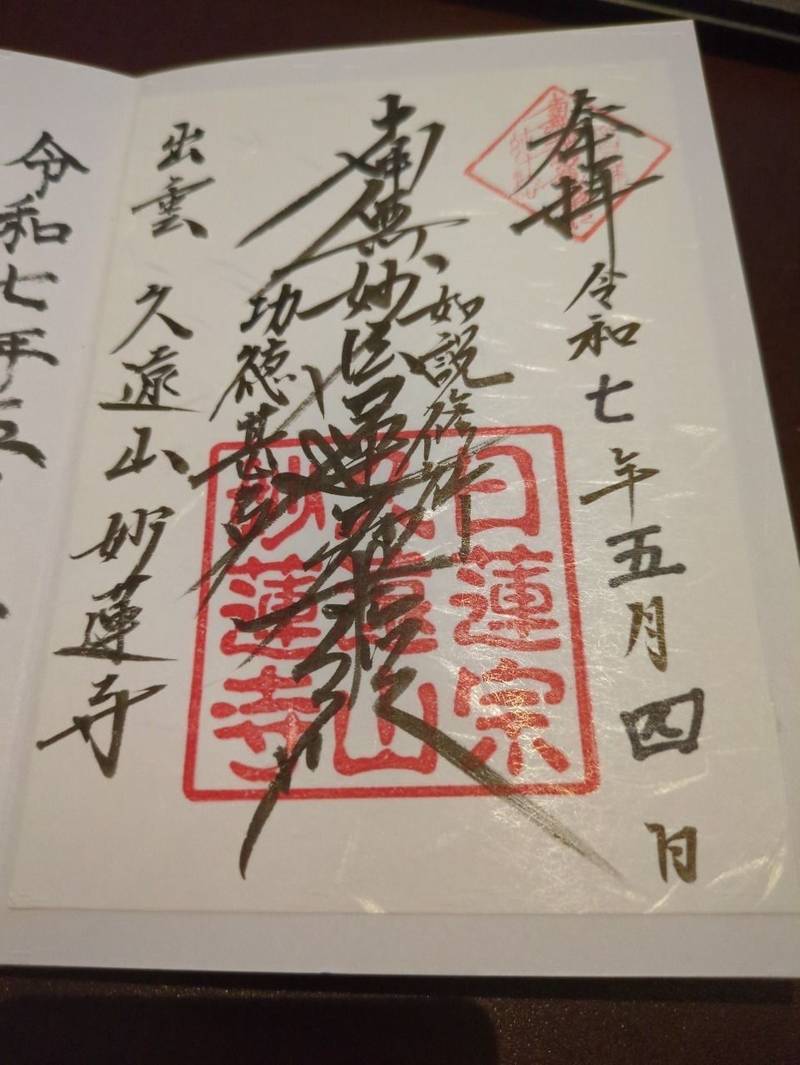 奉拝
令和七年五月四日
如説修行
南無妙法蓮華経
功徳甚多
出雲 久遠山 妙蓮寺
日蓮宗
久遠山
妙蓮寺
令和七年五